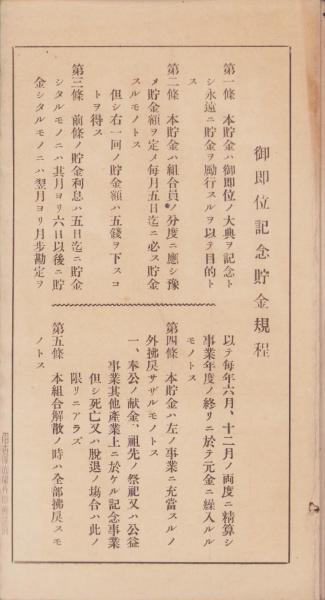 御即位記念貯金規程
第一條　本貯金ハ御即位ノ大典ヲ記念ト
シ永遠ニ貯金ヲ勵行スルヲ以テ目的ト
ス
第二條　本貯金ハ組合員ノ分度ニ應シ豫
メ貯金額ヲ定メ每月五日迄ニ必ス貯金
スルモノトス
但シ右一囘ノ貯金額ハ五錢ヲ下スコ
トヲ得ス
第三條　前條ノ貯金利息ハ五日迄ニ貯金
シタルモノニハ其月ヨリ六日以後ニ貯
金シタルモノニハ翌月ヨリ月步勘定ヲ
以テ每年六月、十二月ノ兩度ニ精算シ
事業年度ノ終リニ於テ元金ニ繰入ルル
モノトス
第四條　本貯金ハ左ノ事業ニ充當スルノ
外拂戾サザルモノトス
一、奉公ノ献金、祖先ノ祭祀又ハ公益
事業其他產業上ニ於ケル記念事業
但シ死亡又ハ脫退ノ場合ハ此ノ
限リニアラズ
第五條　本組合解散ノ時ハ全部拂戾スモ
ノトス